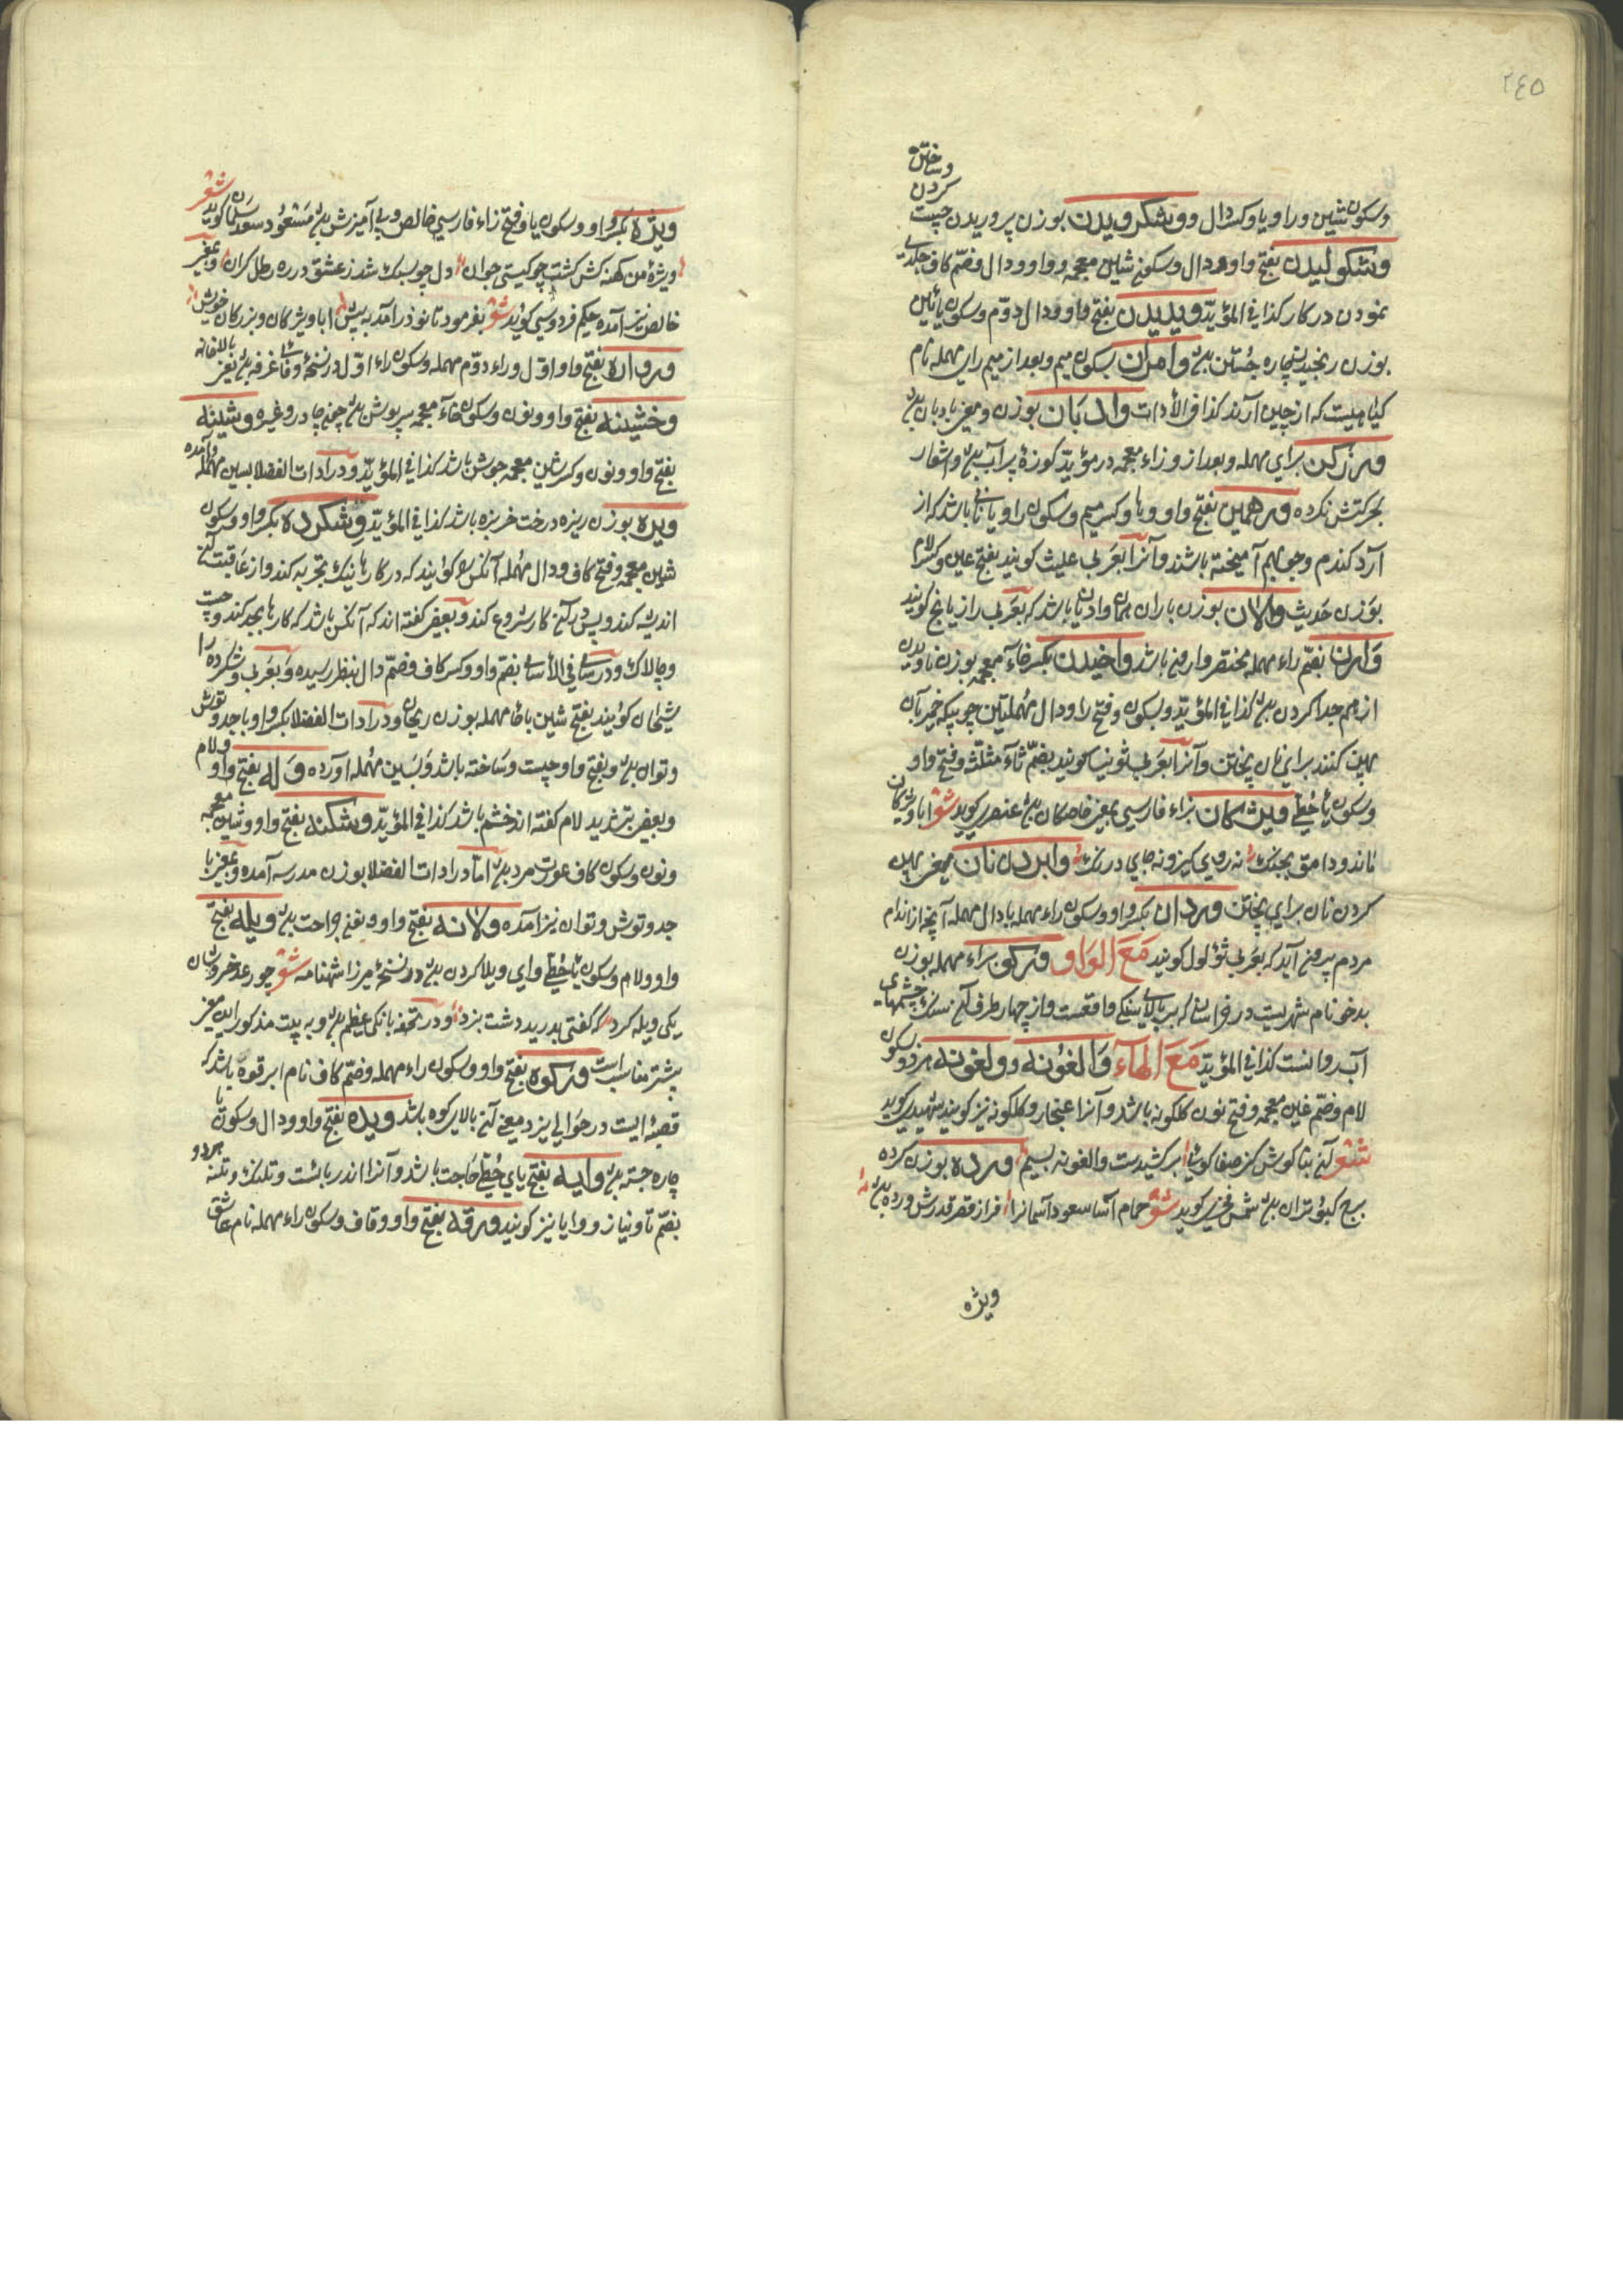 ٢٤٥
وساختن
کردن
وسکون شین و را و یا و کسر دال و وشکرویدن بوزن پروریدن چست
وشکولیدن بفتح واو و دال و سکون شین معجمه و واو و دال و ضم کاف جلدی
نمودن در کار کذا فی المؤید ویدیدن بفتح واو و دال دوم و سکون یائین
بوزن رنجیدن چاره جستن بود وامران بسکون میم و بعد از میم رای مهمله نام
کیاهیست که از چین آرند کذا فی الأدات وادبان بوزن و معنی بادبان بود
ورزکن برای مهمله و بعد از و زاء معجمه در مؤید کوزهٔ پر آب بود و اشعار
بحرکتش نکرده ورهمین بفتح واو و ها و کسر میم و سکون را و یا نانی باشد که از
آرد کندم و جو بهم آمیخته باشند و آنرا بعربی علیث کویند بفتح عین و کسر لام
بوزن حدیث والان بوزن باران همان وادیان باشد که بعربی رازیانج کویند
وارن بضم راء مهمله مختصر وارونی باشد واخیدن بکسر خاء معجمه بوزن ناویدن
از هم جدا کردن بود کذا فی المؤید و بسکون و فتح را و دال مهملتین چوبیکه خمیر بآن
پهن کنند برای نان پختن و آنرا بعربی شوینا کویند بضم ثاء مثلثه و فتح واو
وسکون یاء حطی ویشکان بزاء فارسی بمعنی خاصکان بود عنصری کوید شعر اباویژکان
ماند و دامق بجنک نه روی کیز و نه جای درنک وابردن نان بمعنی پهن
کردن نان برای پختن وردان بکسر واو و سکون راء مهمله با دال مهمله آنچه از اندام
مردم بیرون آید که بعربی ثؤلول کویند مع الواو ورکو براء مهمله بوزن
بدخو نام شهریست در خراسان که بر بالای سنکی واقعست و از چهار طرف آن سنک چشمهای
آب روانست کذا فی المؤید مع الهاء والغونه و ولغونه بهر دو سکون
لام و ضم غین معجمه و فتح نون کلکونه باشد و آنرا غنجار و کلکونه نیز کویند شهیدی کوید
شعر آن بناکوش کز صفا کوئی برکشیدست والغونه بسیم ورده بوزن کرده
برج کبوتران بود شمس فخری کوید شعر حمام آسا سعود آسمانرا فراز قصر قدرش ورده بود
ویژه
ویژه بکسر واو و سکون یا و فتح زاء فارسی خالص و بی آمیزش بود مسعود سعد سلمان کوید شعر
ویژهٔ من کهنه کش کشت چو کیتی جوان دل چو سبک شد ز عشق در ده رطل کران و بمعنی
خالص نیز آمده حکیم فردوسی کوید شعر بفرمود تا نوذر آمد به پیش ابا ویژکان و بزرکان خویش
ورواره بفتح واو اول و راء دوم مهمله و سکون راء اول در نسخهٔ وفائی غرفه بود یعنی بالاخانه
وخشینه بفتح واو و نون و سکون خاء معجمه سرپوش بود چون چادر و غیره وشینه
بفتح واو و نون و کسر شین معجمه جوشن باشد کذا فی المؤید و در ادات الفضلا بسین مهمله آمده
ویره بوزن ریزه درخت خربزه باشد کذا فی المؤید وشکرده بکسر واو و سکون
شین معجمه و فتح کاف و دال مهمله آنکس را کویند که در کارها نیک تجربه کند و از عاقبت آن
اندیشه کند و پس در آن کار شروع کند و بعضی کفته اند که آنکس باشد که کارها بجد کند و چست
و چالاک و در سامی فی الأسامی بضم واو و کسر کاف و ضم دال بنظر رسیده و بعربی وشکرده را
شیحان کویند بفتح شین با حاء مهمله بوزن ریحان و در ادات الفضلا بکسر واو با جد و توش
و توان بود و بفتح واو چست و ساخته باشد و بسین مهمله آورده واله بفتح واو و لام
و بعضی بتشدید لام کفته اند خشم باشد کذا فی المؤید وشکنه بفتح واو و شین معجمه
و نون و سکون کاف عورت مرد بود اما در ادات الفضلا بوزن مدرسه آمده و بمعنی با
جد و توش و توان نیز آمده ولانه بفتح واو و نون جراحت بود ویله بفتح
واو و لام و سکون یاء حطی وای ویلا کردن بود در نسخهٔ میرزا شهنامه شعر چو رعد خروشان
یکی ویله کرد که کفتی بدرید دشت نبرد و در تحفه بانکی عظیم بود و به بیت مذکور این معنی
بیشتر مناسب است ورکوه بفتح واو و سکون راء مهمله و ضم کاف نام ابرقوه باشد که
قصبهٔ ایست در حوالی یزد یعنی آن بالای کوه باشد ویده بفتح واو و دال و سکون یا
چاره جستن بود وایه بفتح یای حطی حاجت باشد و آنرا اندربائست و تلنک و تلنه هر دو
بضم تا و نیاز و وایا نیز کویند ورقه بفتح واو و قاف و سکون راء مهمله نام عاشق